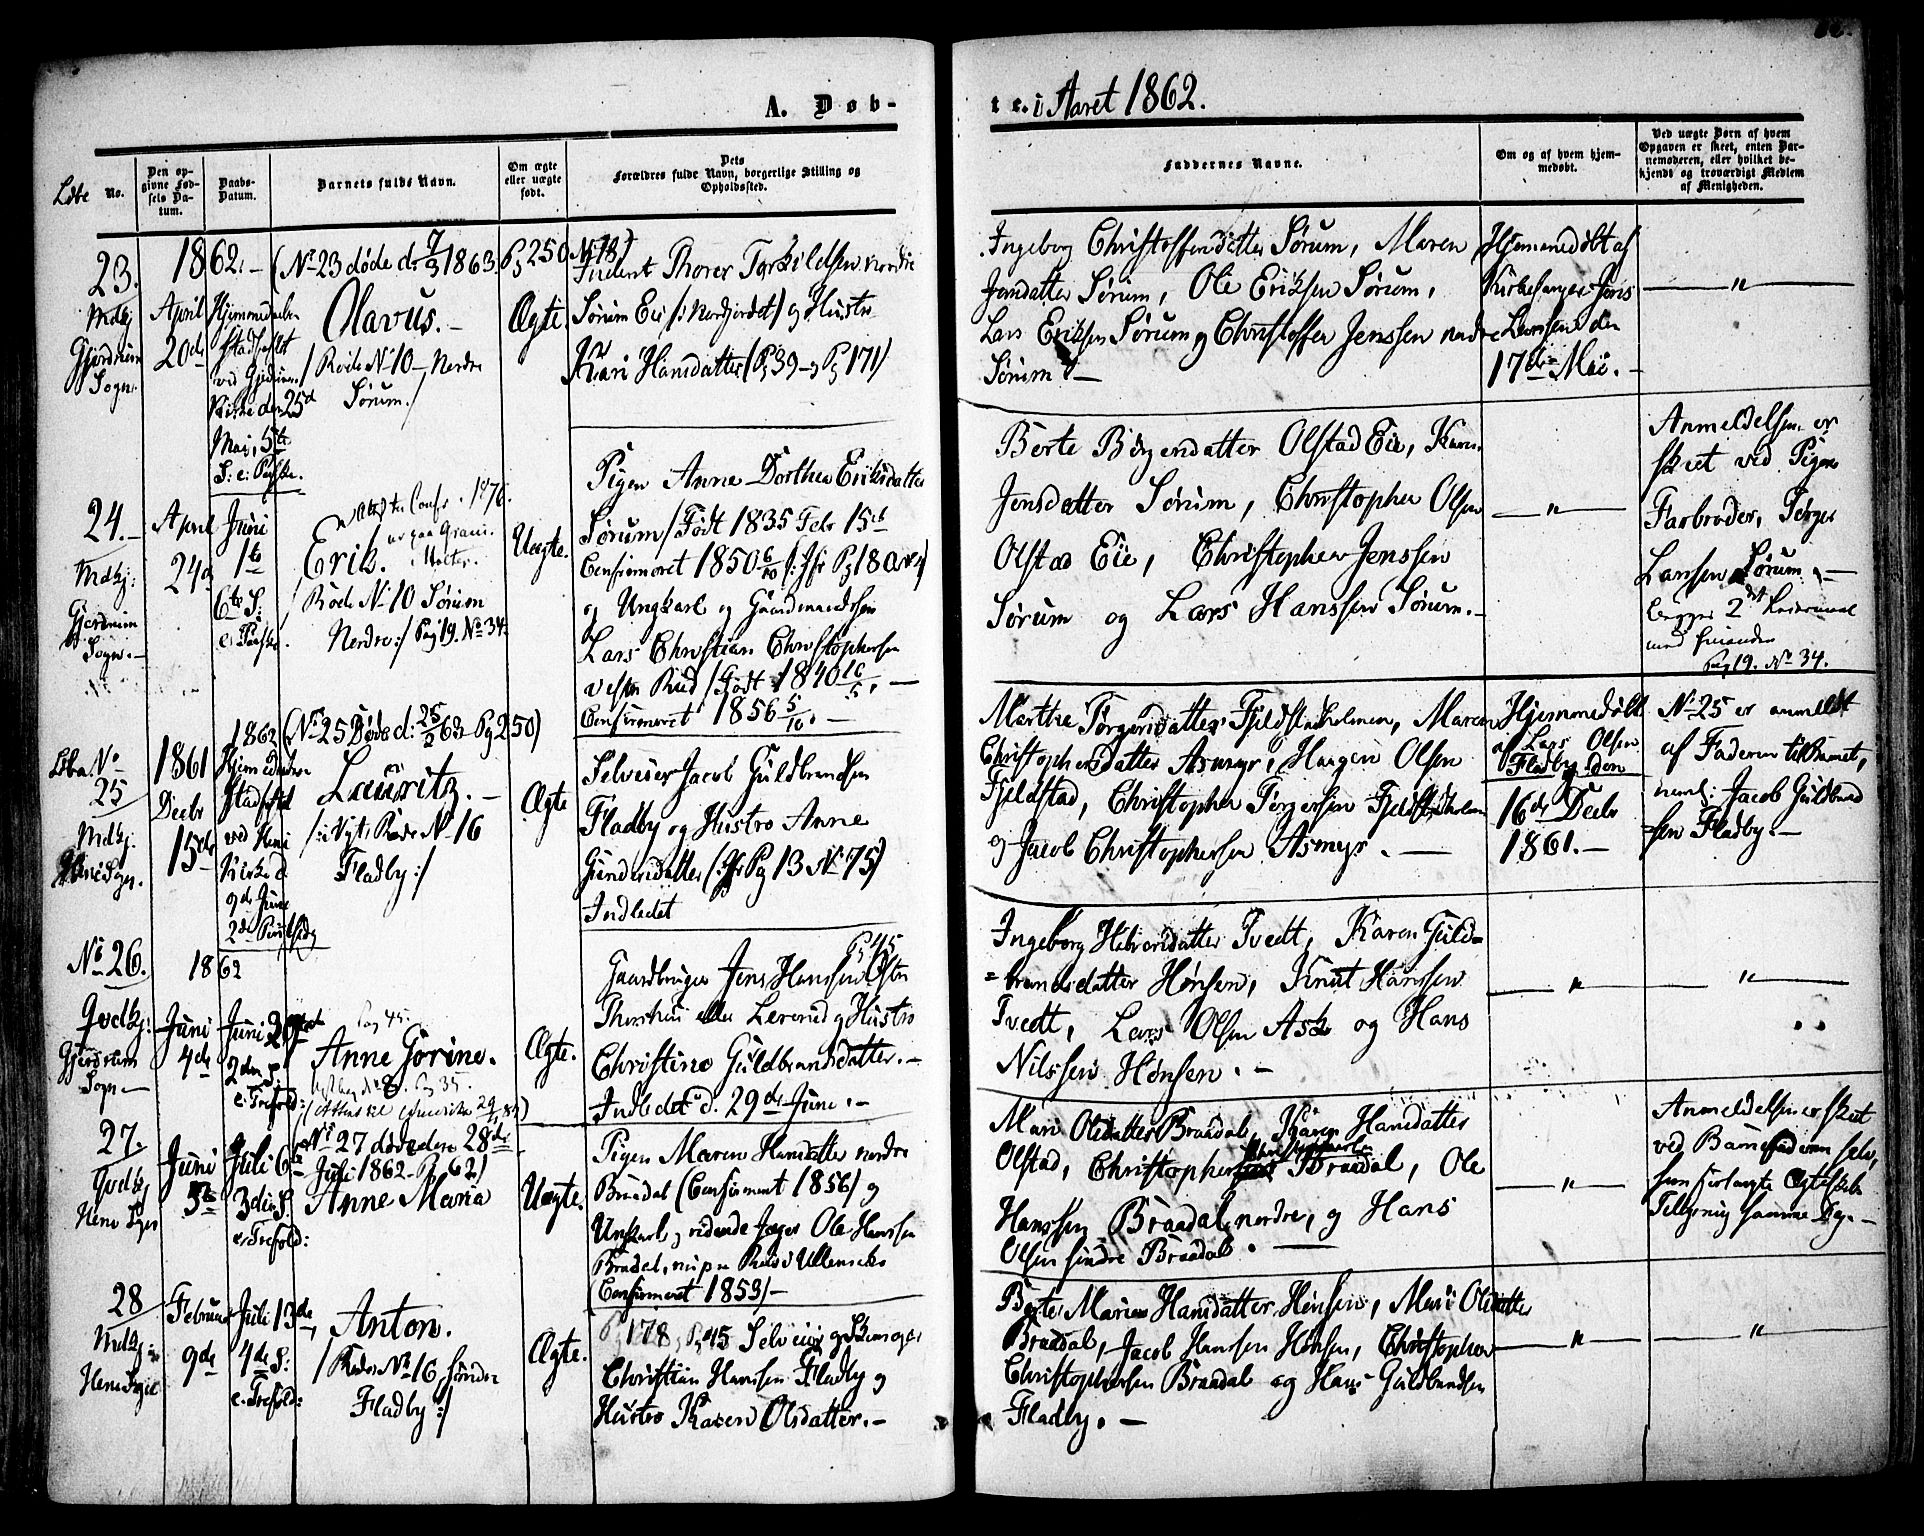 A. Døb-
te. i Aaret 1862.
Løbe No.
Den op-
givne Fød-
sels Da-
tum.
Daabs-
Datum.
Barnets fulde Navn.
Om ægte
eller uægte
født.
Dets
Forældres fulde Navn, borgerlige Stilling og
Opholdssted.
Faddernes Navne.
Om og af hvem hjem-
medøbt.
Ved uægte Børn af hvem
Opgaven er skeet, enten Bar-
nemoderen, eller hvilket be-
kjendt og troværdigt Medlem
af Menigheden.
23.
Mdkj
Gjerdrum
Sogn.
1862.
April
20de
Hjemmedøbt
Stadfæstet
ved Gjerdrum
Kirke den 25d
Mai, 5te
S: e: Paaske.
(No 23 døde d. 7/3 1863 Pg 250 No 18)
Olavus.
/ Rode No 10 Nordre
Sørum./
Ægte.
Inderst Thorer Torkildsen nordre
Sørum Eie /: Nordjordet/ og Hustro
Kari Hansdatter (Pg 39 og Pg 171)
Ingeborg Christoffersdatter Sørum, Maren
Jensdatter Sørum, Ole Eriksen Sørum,
Lars Eriksen Sørum og Christoffer Jenssen nordre
Sørum.
Hjemmedøbt af
Kirkesanger Jens
Larssen den
17de Mai.
"
24.
Mdkj:
Gjerdrum
Sogn.
April
24d
Juni
1te
6te S:
e: Paaske
Confr. 1876.
Erik.
/ Rode No 10 Sørum
Nordre:/ Pag 19. No 34.
Uægte.
Pigen Anne Dorthea Eriksdatter
Sørum / Født 1835 Febr 15de
Confirmeret 1850 6/10 /: Jfr Pg 180
og Ungkarl og Gaardmandssøn
Lars Christian Christophersen
vestre Rud / Født 1840 16/5.
Confirmeret 1856 5/10.
Berte Børgersdatter Olstad Eie, Karen
Jensdatter Sørum, Christopher Olsen
Olstad Eie, Christopher Jenssen
Sørum og Lars Hanssen Sørum.
"
Anmeldelsen er
skeet ved Pigens
Farbroder, Torger
Larssen Sørum.
Pag 19. No 34.
Løbe No
25
Mdkj.
Heni Sogn.
1861
Decbr
15de
1862
Hjemmedøbt
Stadfæstet
ved Heni
Kirke d.
9de Juni
2den Pintsedag
(No 25 Døde d: 25/2 63 Pg 250)
Lauritz.
/: Vgt: Rode No 16
Fladby:/
Ægte
Selveier Jacob Guldbrandsen
Fladby og Hustro Anne
Gundersdatter (: Jfr Pg 13 No 75)
Indledet
Marthe Torgersdatter Fjeldstadholmen, Maren
Christophersdatter Asmyr, Hagen Olsen
Fjeldstad, Christopher Torgersen Fjeldstadholmen
og Jacob Christophersen Asmyr.
Hjemmedøbt
af Lars Olsen
Fladby den
16de Decbr
1861.
No 25 er anmeldt
af Faderen til Barnet,
neml: Jacob Guldbrand
sen Fladby.
No 26.
Godkj:
Gjerdrum
Sogn
1862
Juni
4de
Juni 29
2den p:
e. Trefold:
Pag 45.
Anne Gorine.
Pag 35.
Ægte.
Pg 45
Gaardbruger Jens Hanssen Østre
Thorshui eller Lererud og Hustro
Christine Guldbrandsdatter.
Indledet d. 29de Juni.
Ingeborg Halvorsdatter Tvedt, Karen Guld-
brandsdatter Hønsen, Knut Hanssen
Tvedt, Lars Olsen Ask og Hans
Nilssen Hønsen.
"
"
27.
Godkj
Heni Sogn
Juni
5te
Juli 6te
3die S.
e. Trefold:
No 27 døde den 28de
Juli 1862. Pg 62)
Anne Maria
Uægte.
Pigen Maren Hansdatter nordre
Braadal (Confirmeret 1856) og
Ungkarl og ridende Jæger Ole Hanssen
Braadal, nu paa Risø i Ullensaker
(Confirmeret 1853)
Mari Olsdatter Braadal, Karen Hansdatter
Olstad, Christopher Braadal, Ole
Hanssen Braadal nordre, og Hans
Olsen søndre Braadal.
"
Anmeldelsen er skeet
ved Barnefaderen selv,
som forlangte Ægteskabs
Tillysning samme Dag.
28
Mdkj
Heni Sogn
Februar
9de
Juli 13de
4de S:
e. Trefold:
Anton.
/ Rode No 16 søndre
Fladby:/
Ægte.
Pg 178, Pg 45 Selveier og Skomager
Christian Hanssen Fladby og
Hustro Karen Olsdatter.
Berte Marie Hansdatter Hønsen, Mari Olsdatter
Braadal, Jacob Hanssen Hønsen, Christopher
Christophersen Braadal og Hans Guldbrandsen
Fladby.
"
"